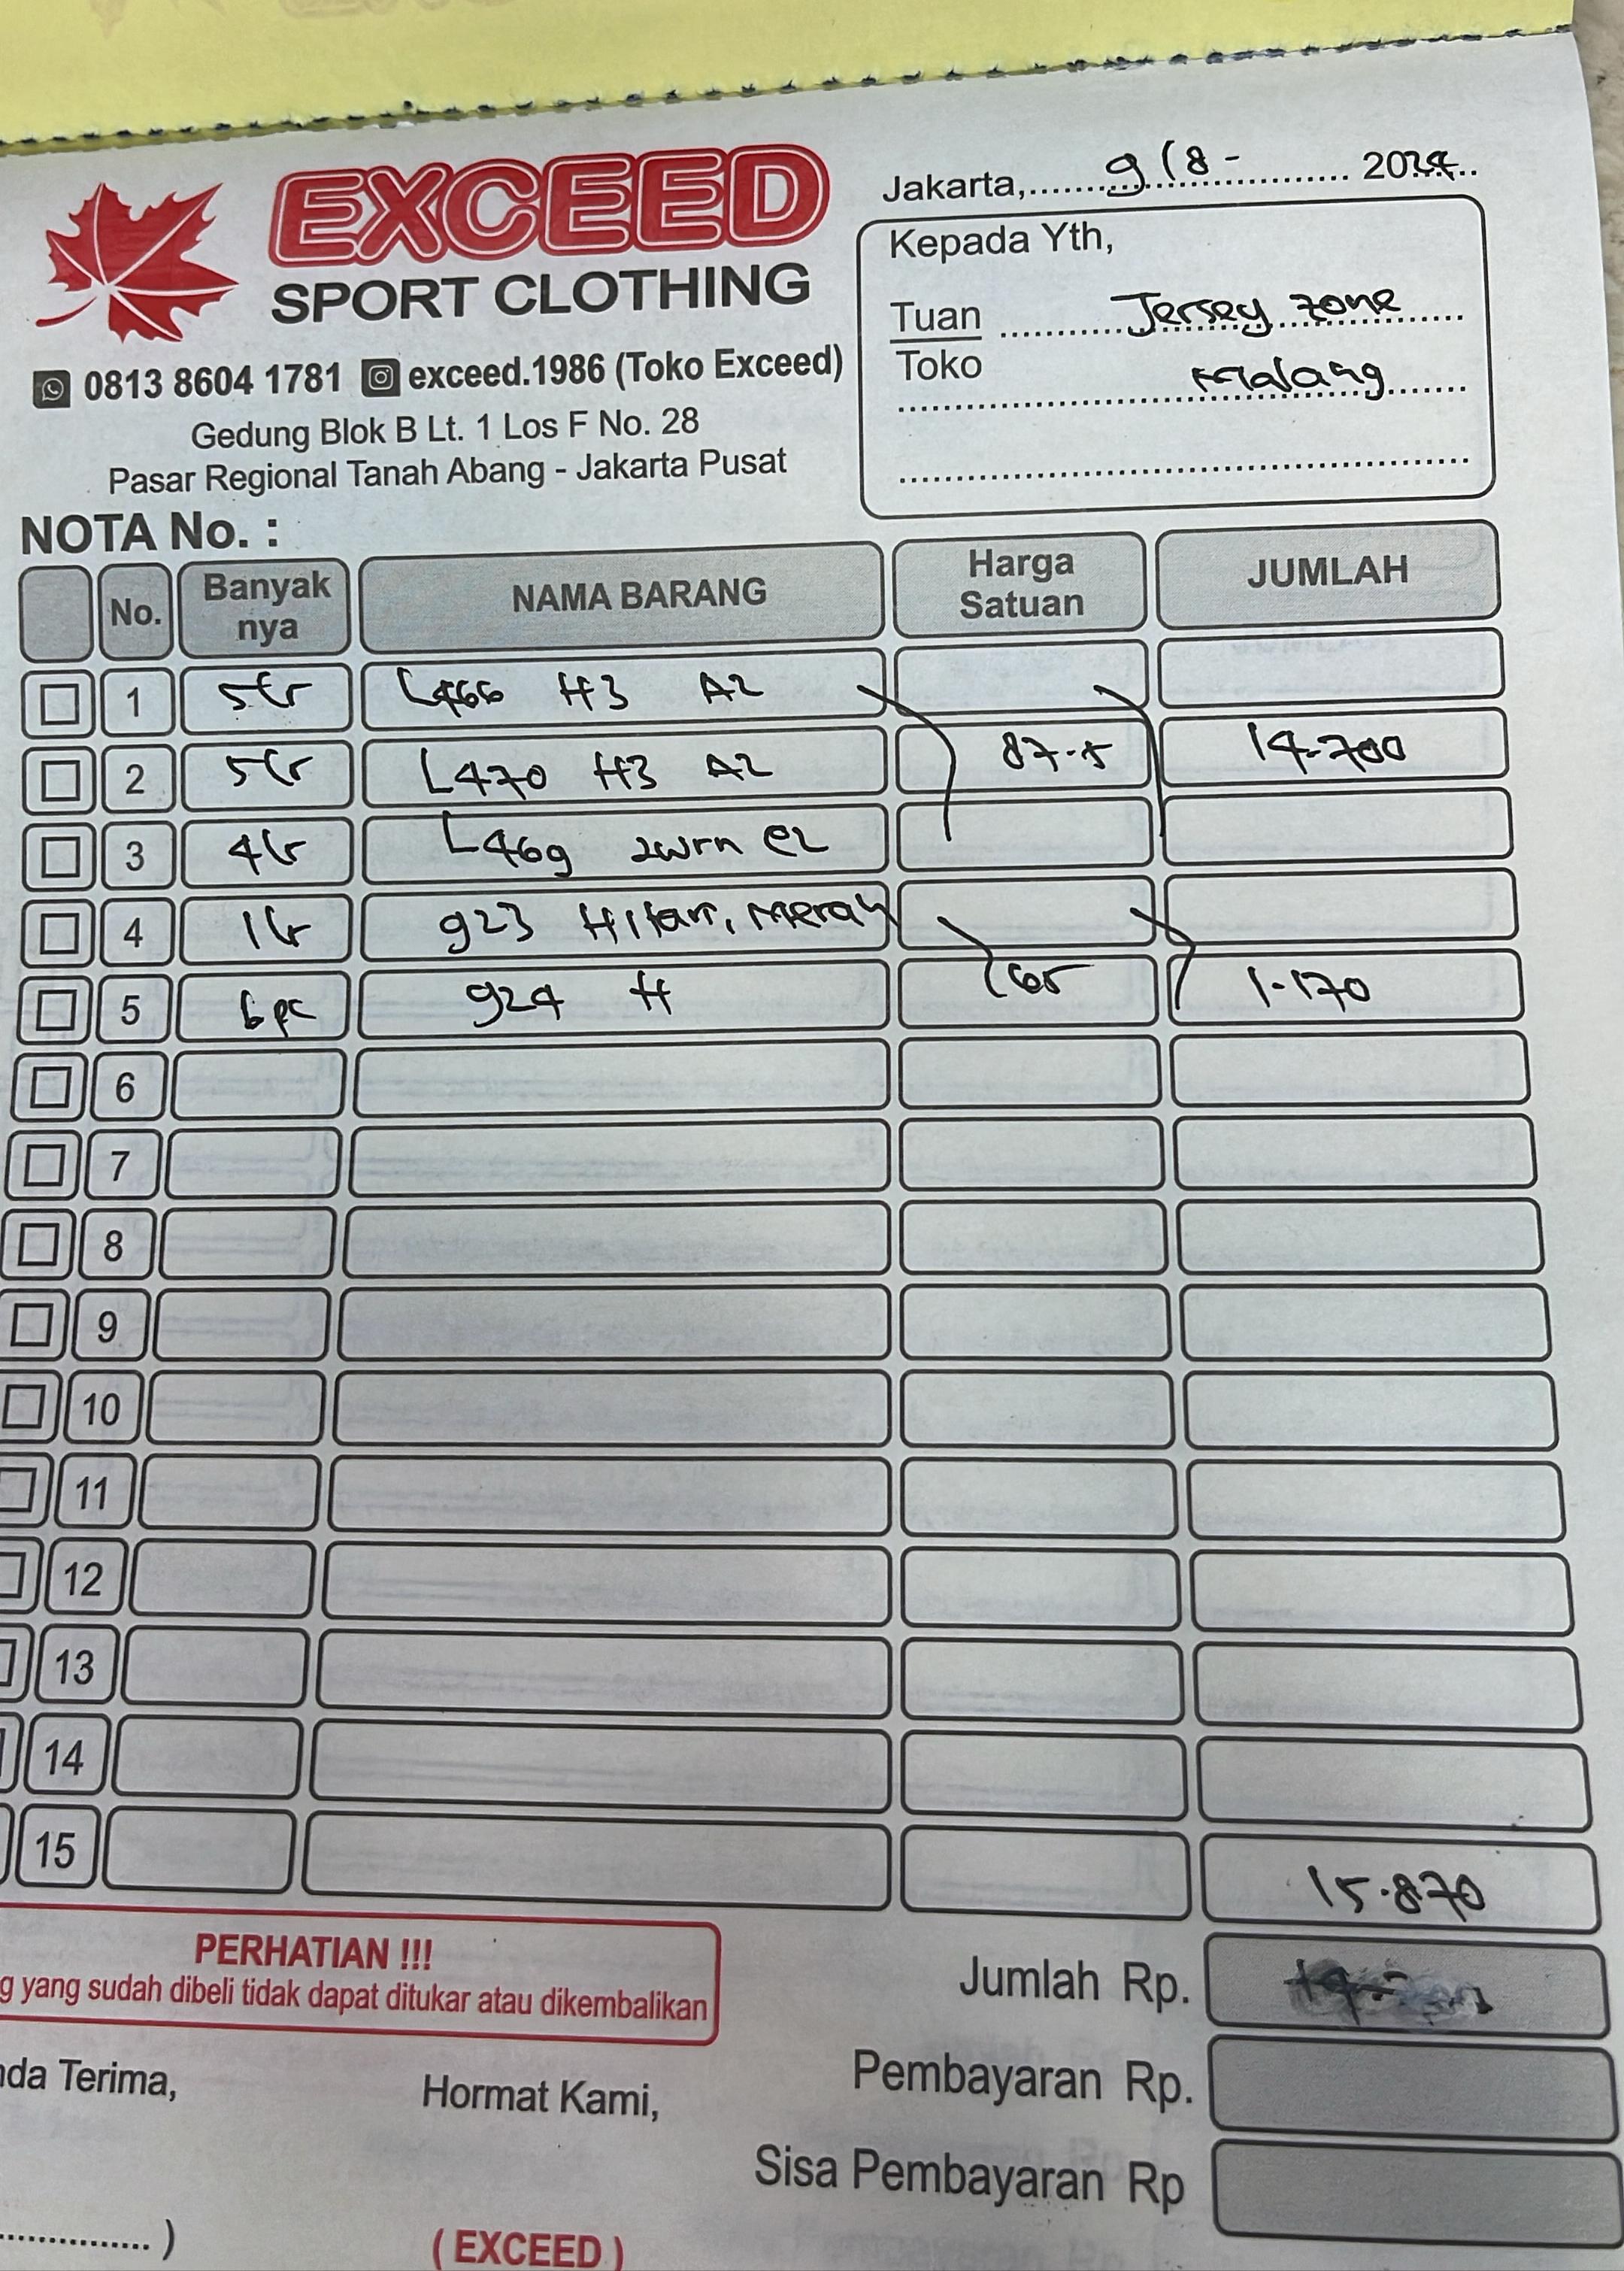 EXCEED
SPORT CLOTHING
0813 8604 1781 exceed.1986 (Toko Exceed)
Gedung Blok B Lt. 1 Los F No. 28
Pasar Regional Tanah Abang - Jakarta Pusat
Jakarta, 9/8 - 2024
Kepada Yth,
Tuan Jersey zone
Toko Malang
NOTA No. :
No. Banyak nya NAMA BARANG Harga Satuan JUMLAH
1 5 L466 H3 A2
2 5 L470 H3 A2 87.5 14.700
3 4 L469 2wrn e2
4 1 923 Hitam, Merah
5 6 pc 924 H 65 1.170
6
7
8
9
10
11
12
13
14
15 15.870
PERHATIAN !!!
g yang sudah dibeli tidak dapat ditukar atau dikembalikan
Jumlah Rp.
nda Terima,
Hormat Kami,
Pembayaran Rp.
Sisa Pembayaran Rp
.............. )
( EXCEED )